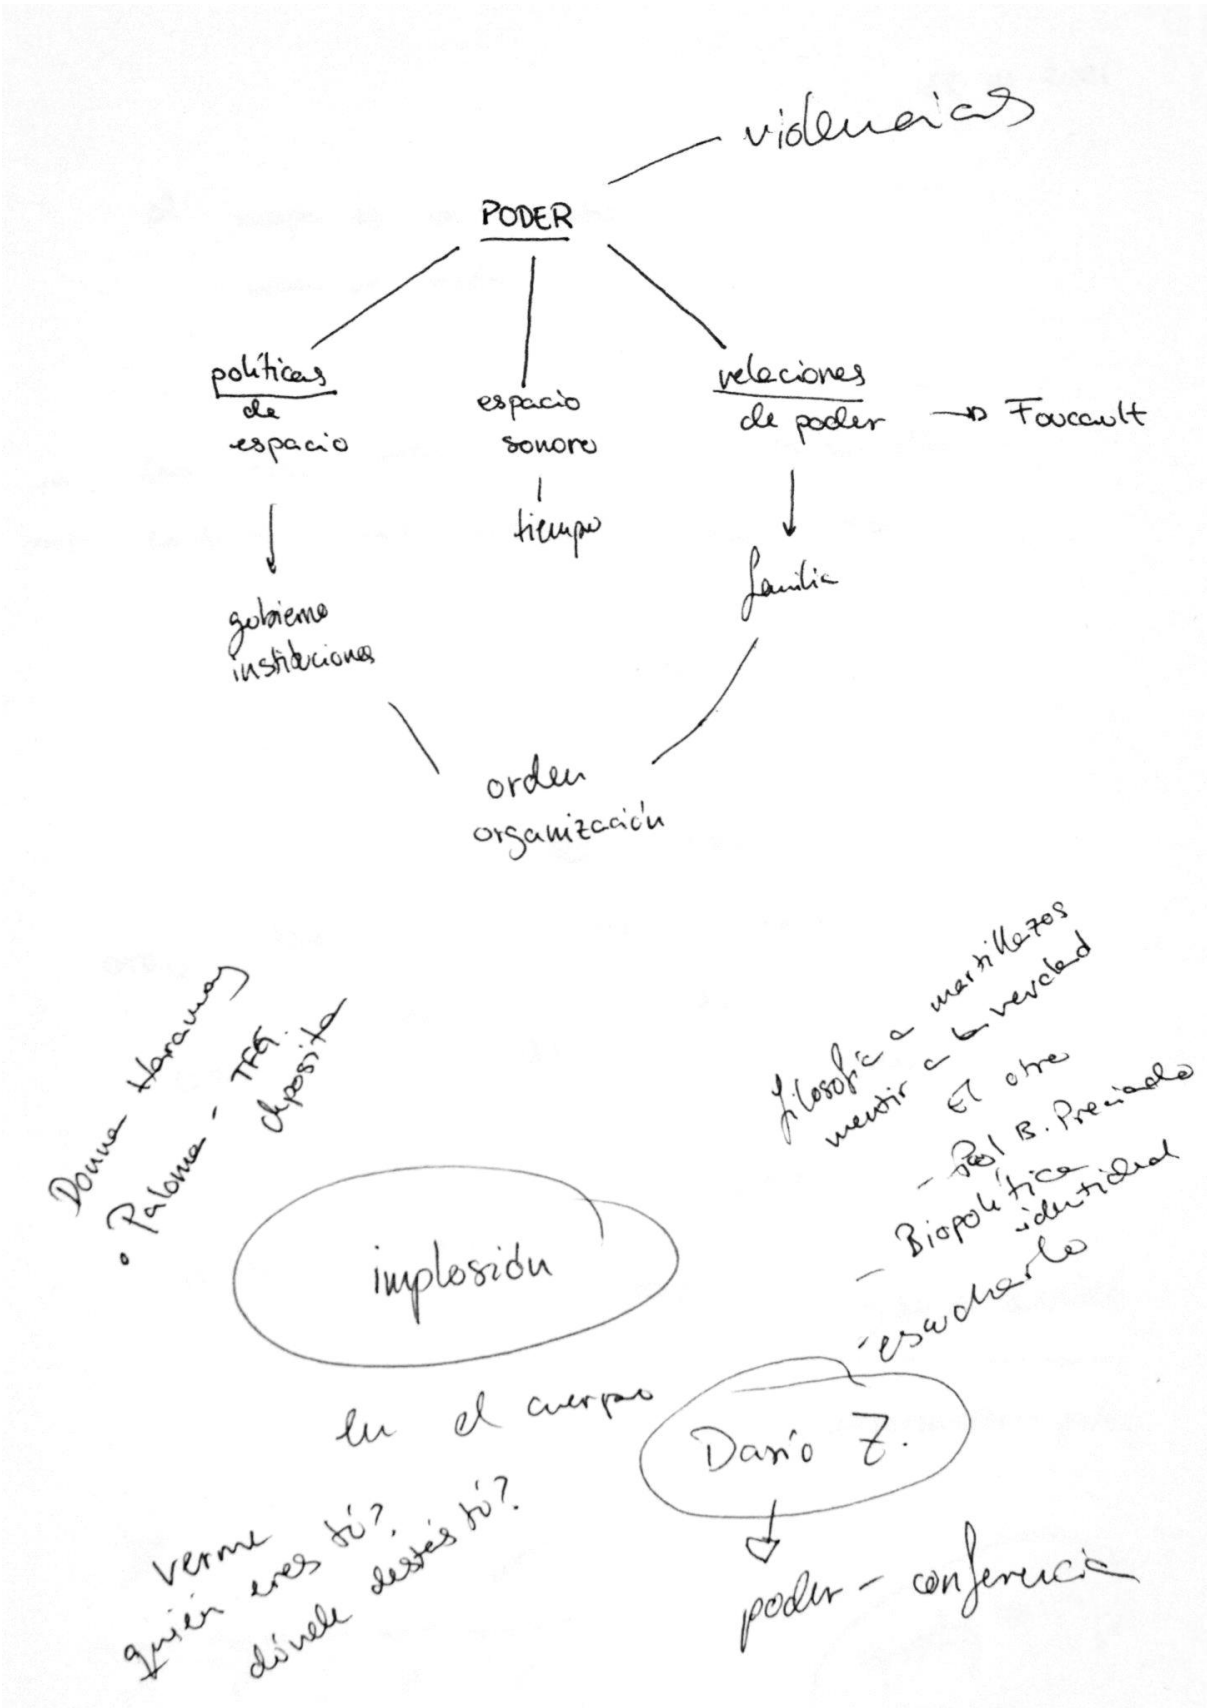 violencias
PODER
políticas
de
espacio
espacio
sonoro
tiempo
relaciones
de poder → Foucault
familia
gobierno
instituciones
orden
organización
Donna Haraway
• Paloma - TFG.
deposita
filosofía a martillazos
mentir a la verdad
El otro
- Paul B. Preciado
- Biopolítica
identidad
- escucharlo
implosión
en el cuerpo
Darío Z.
poder - conferencia
verme
quién eres tú?
dónde estás tú?